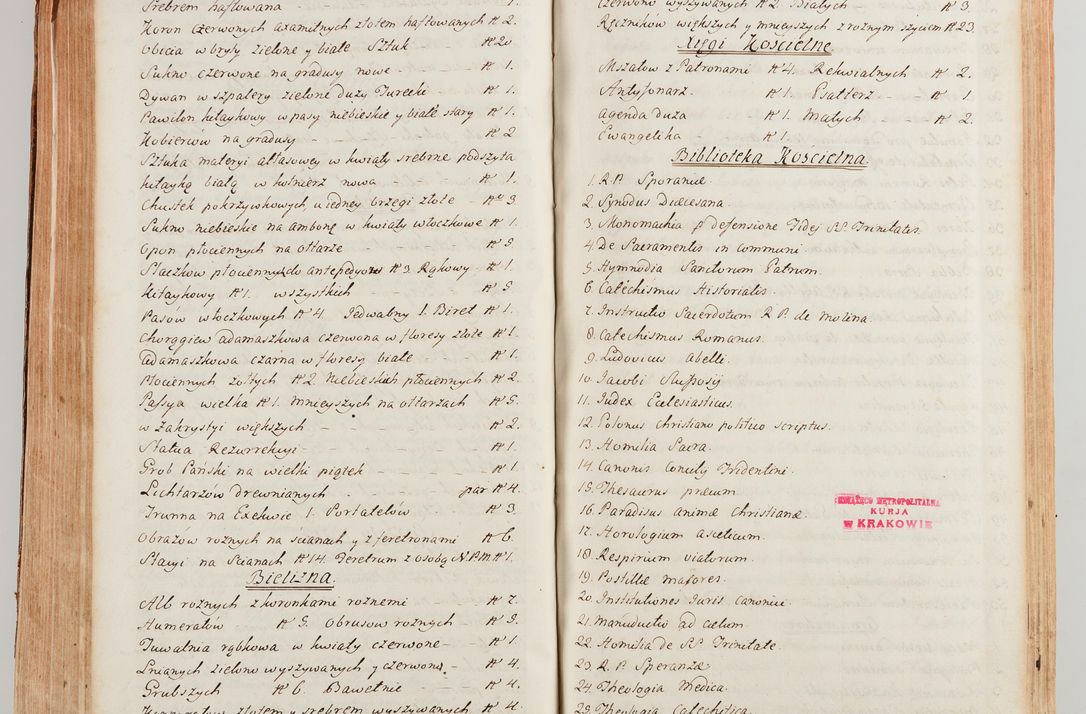 Srebrem haftowana - 1.
Koron czerwonych axamitnych złotem haftowanych N 2.
Obicia w bryty zielone y białe Sztuk N 20
Sukno czerwone na gradusy nowe - N 1.
Dywan w szpalery zielone duży Turecki - N 1.
Pawilon kitaykowy w pasy niebieskie y białe stary N 1.
Kobierców na gradusy - N 2
Sztuka materyi atłasowey w kwiaty srebrne podszyta
kitayką białą w kołnierz nowa - N 1.
Chustek pokrzywkowych, u iedney brzegi złote - N 3
Sukno niebieskie na ambonę w kwiaty włoczkowe N 1.
Opon płociennych na ołtarze N 9
Staczkow płociennych do antepedyow N 3. Rąkowy - N 1.
Kitaykowy N 1. wszystkich N 5
Pasów włoczkowych N 4. Jedwabny 1. Biret N 1.
Chorągiew adamaszkowa czerwona w floresy złote N 1.
adamaszkowa czarna w floresy białe - N 1.
Płociennych żołtych N 2. Niebieskich płociennych N 2.
Passya wielka N 1. mnieyszych na ołtarzach N 5.
w Zakrystyi większych - N 2.
Statua Rezurrekcyi - N 1.
Grob Pański na wielki piątek - N 1.
Lichtarzów drewnianych - par N 4.
Trunna na Exekwie 1. Portatelów - N 3.
Obrazów roznych na ścianach y z feretronami N 6.
Stacyi na Scianach N 14. Feretrum z osobą N.P.M. N 1.
Bielizna.
Alb roznych z koronkami roznemi - N 7.
Humeratów N 5. Obrusow roznych - N 9.
Tuwalnia rąbkowa w kwiaty czerwone - N 1.
Lnianych zielono wyszywanych y czerwono - N 4.
Grubszych N 6. Bawełnie - N 4.
złotem y srebrem wyszywanych N 4.
Czerwono wyszywanych N 2. Białych N 3.
Ręczników większych y mnieyszych z roznym szyciem N 23.
Xięgi Koscielne
Mszałow z Patronami N 4. Rekwialnych N 2.
Antyfonarz. N 1. Psałterz - N 1.
agenda duza N 1. Małych - N 2.
Ewangelika - N 1.
Biblioteka Koscielna.
1. R. P. Sporanie.
2. Synodus Diæcesana.
3. Monomachia p defensione Fidej SS. Trinitatis.
4. De Sacramentis in communi.
5. Hymnodia Sanctorum Patrum.
6. Catechismus Historialis.
7. Instructio Sacerdotum R. P. de Molina.
8. Catechismus Romanus.
9. Ludovicus Abelli.
10. Iacobi
11. Index Eclesiasticus.
12. Polonus Christiano politico scriptus.
13. Homilia Sacra.
14. Canones Concily Tridentini.
15. Thesaurus precum.
16. Paradisus animæ Christianæ.
17. Horologium asceticum.
18. Respirium viatorum.
19. Postillæ majores.
20. Institutiones Iuris Canonici.
21. Manuductio ad cælum.
22. Homilia de SS. Trinitate.
23. R. P. Speranzæ
24. Theologia Medica.
25. Theologia Catechetica.
KSIĄŻĘCO METROPOLITALNA
KURJA
W KRAKOWIE